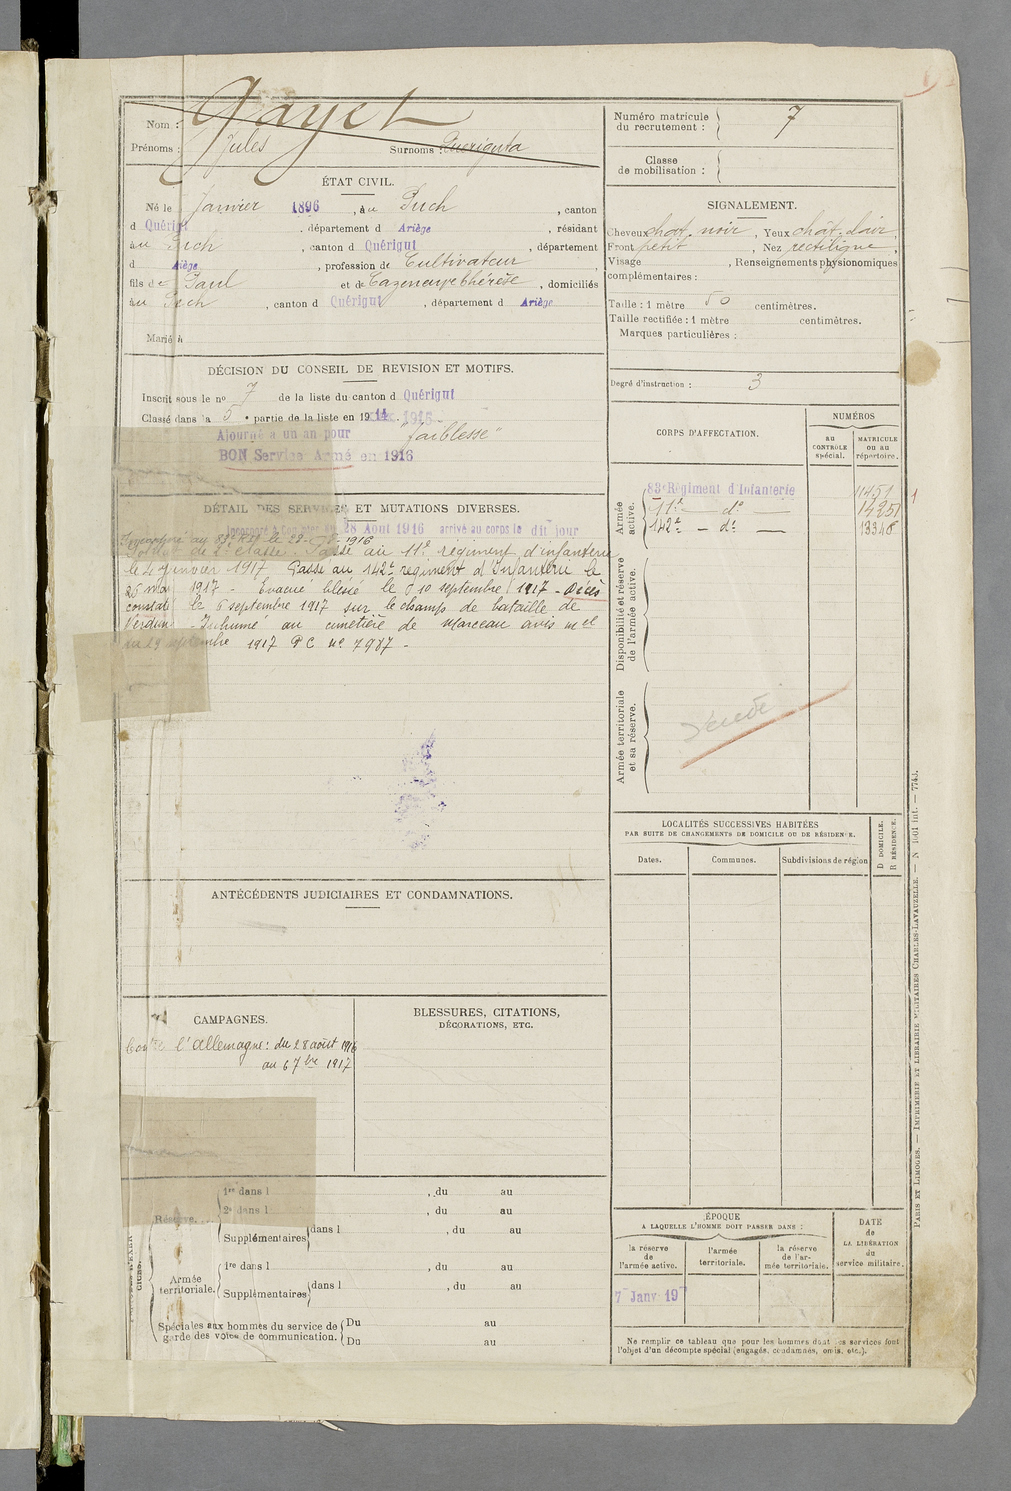 Nom : Gayet
Prénoms : Jules Surnoms :
ÉTAT CIVIL.
Né le Janvier 1896, à u Puch, canton
d Quérigut, département d Ariège, résidant
au Puch, canton d Quérigut, département
d Ariège, profession de Cultivateur
fils de Paul et de Cazeneuve Thérèse, domiciliés
au Puch, canton d Quérigut, département d Ariège
Marié à
DÉCISION DU CONSEIL DE REVISION ET MOTIFS.
Inscrit sous le no 7 de la liste du canton d Quérigut
Classé dans la 5 e partie de la liste en 1914. 1916
Ajourné a un an pour "faiblesse"
BON Service Armé en 1916
DÉTAIL DES SERVICES ET MUTATIONS DIVERSES.
Incorporé à compter du 28 Aout 1916 arrivé au corps le dit jour
Incorporé au 83e RI le 28-8-1916
Soldat de 2e classe. Passé au 11e régiment d'infanterie
le 4 janvier 1917 Passé au 142e régiment d'Infanterie le
25 mai 1917 - Evacué blessé le 10 septembre 1917 - Décès
constaté le 6 septembre 1917 sur le champ de bataille de
Verdun Inhumé au cimetière de Marceau avis mel
du 19 septembre 1917 PC no 7987 -
ANTÉCÉDENTS JUDICIAIRES ET CONDAMNATIONS.
CAMPAGNES.
Contre l'Allemagne : du 28 août 1916
au 6 7bre 1917
BLESSURES, CITATIONS,
DÉCORATIONS, ETC.
Réserve....
1re dans l , du au
2e dans l , du au
Supplémentaires dans l , du au
Armée
territoriale.
1re dans l , du au
Supplémentaires dans l , du au
Spéciales aux hommes du service de
garde des voies de communication.
Du au
Du au
Numéro matricule
du recrutement : 7
Classe
de mobilisation :
SIGNALEMENT.
Cheveux chat. noir, Yeux chât. clair,
Front petit, Nez rectiligne,
Visage , Renseignements physionomiques
complémentaires :
Taille : 1 mètre 50 centimètres.
Taille rectifiée : 1 mètre centimètres.
Marques particulières :
Degré d'instruction : 3
CORPS D'AFFECTATION.
NUMÉROS
au
CONTRÔLE
spécial.
MATRICULE
ou au
répertoire.
Armée
active.
83e Régiment d'Infanterie 11451
11e — do — 14251
142e — do — 13348
Disponibilité et réserve
de l'armée active.
Armée territoriale
et sa réserve.
Décédé
LOCALITÉS SUCCESSIVES HABITÉES
PAR SUITE DE CHANGEMENTS DE DOMICILE OU DE RÉSIDENCE.
Dates. Communes. Subdivisions de région
D DOMICILE.
R RÉSIDENCE.
ÉPOQUE
A LAQUELLE L'HOMME DOIT PASSER DANS :
la réserve
de
l'armée active.
l'armée
territoriale.
la réserve
de l'ar-
mée territoriale.
DATE
de
LA LIBÉRATION
du
service militaire.
7 Janv 19
Ne remplir ce tableau que pour les hommes dont les services font
l'objet d'un décompte spécial (engagés, condamnés, omis, etc.).
PARIS ET LIMOGES. — IMPRIMERIE ET LIBRAIRIE MILITAIRES CHARLES-LAVAUZELLE. — N 1601 int. — 7743.